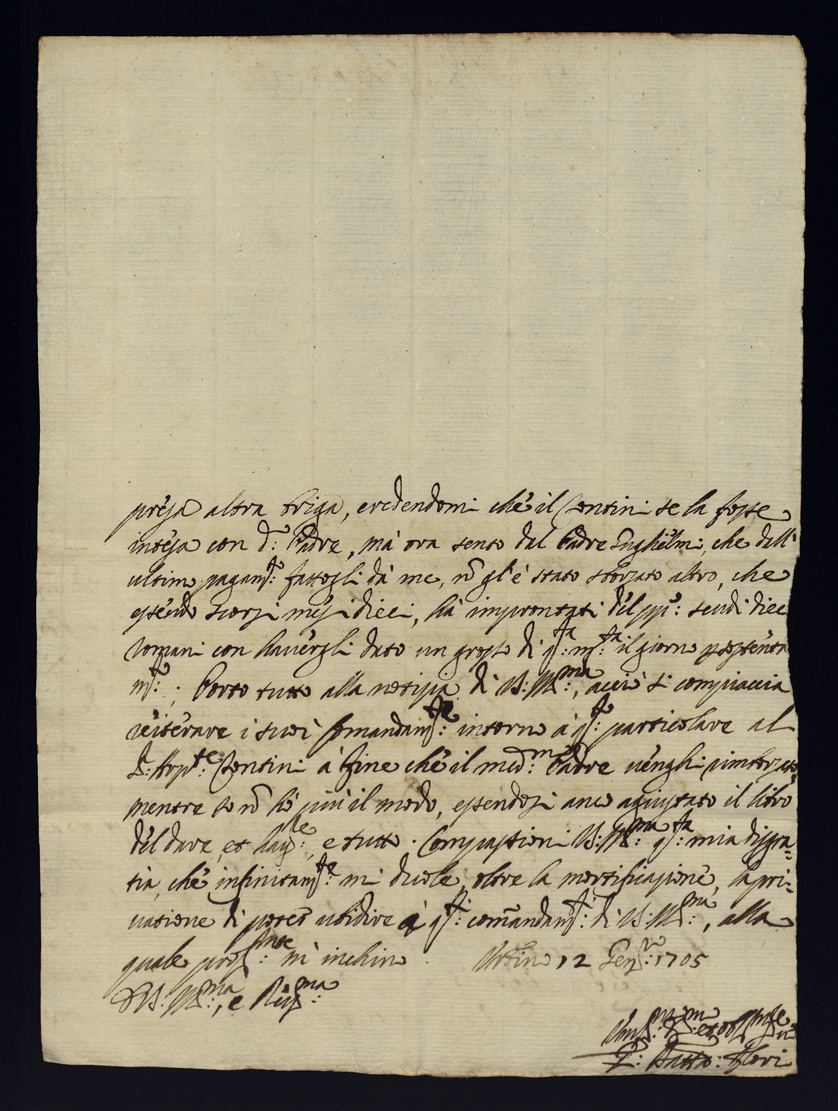 presa altra briga, credendomi che il Contini se la fosse
intesa con d.º Padre, mà ora sento dal Padre Inghilmi, che dall'
ultimo pagam.to fattogli dà me, nõ gl'è stato sborzato altro, che
essendo scorsi mesi dieci, hà improntati del pp.º scudi diec
romani con havergli dato un groppo di q.ta m.ta il giorno
Porto tutto alla notizia di V.S: Ill.ma, acciò si compiaccia
reiterare i suoi Comandam.ti intorno à q.to particolare al
S: Contini à fine che il med.mo Padre venghi rimborzato
mentre io nõ hò più il modo, essendosi anco agiustato il libro
del dare, et hav.re, e tutto. Compassioni V.S: Ill.ma q.ta mia disgra=
tia, che infinitam.te mi duole, oltre la mortificazione, la pri=
vatione di poter ubidire à q.ti comãndam.ti di V.S: Ill.ma, alla
quale prof.mte m'inchino. Urbino 12 Gen.ro 1705
D V.S: Ill.ma, e Rev.ma
Um.mo D.mo et obl.mo Se.re